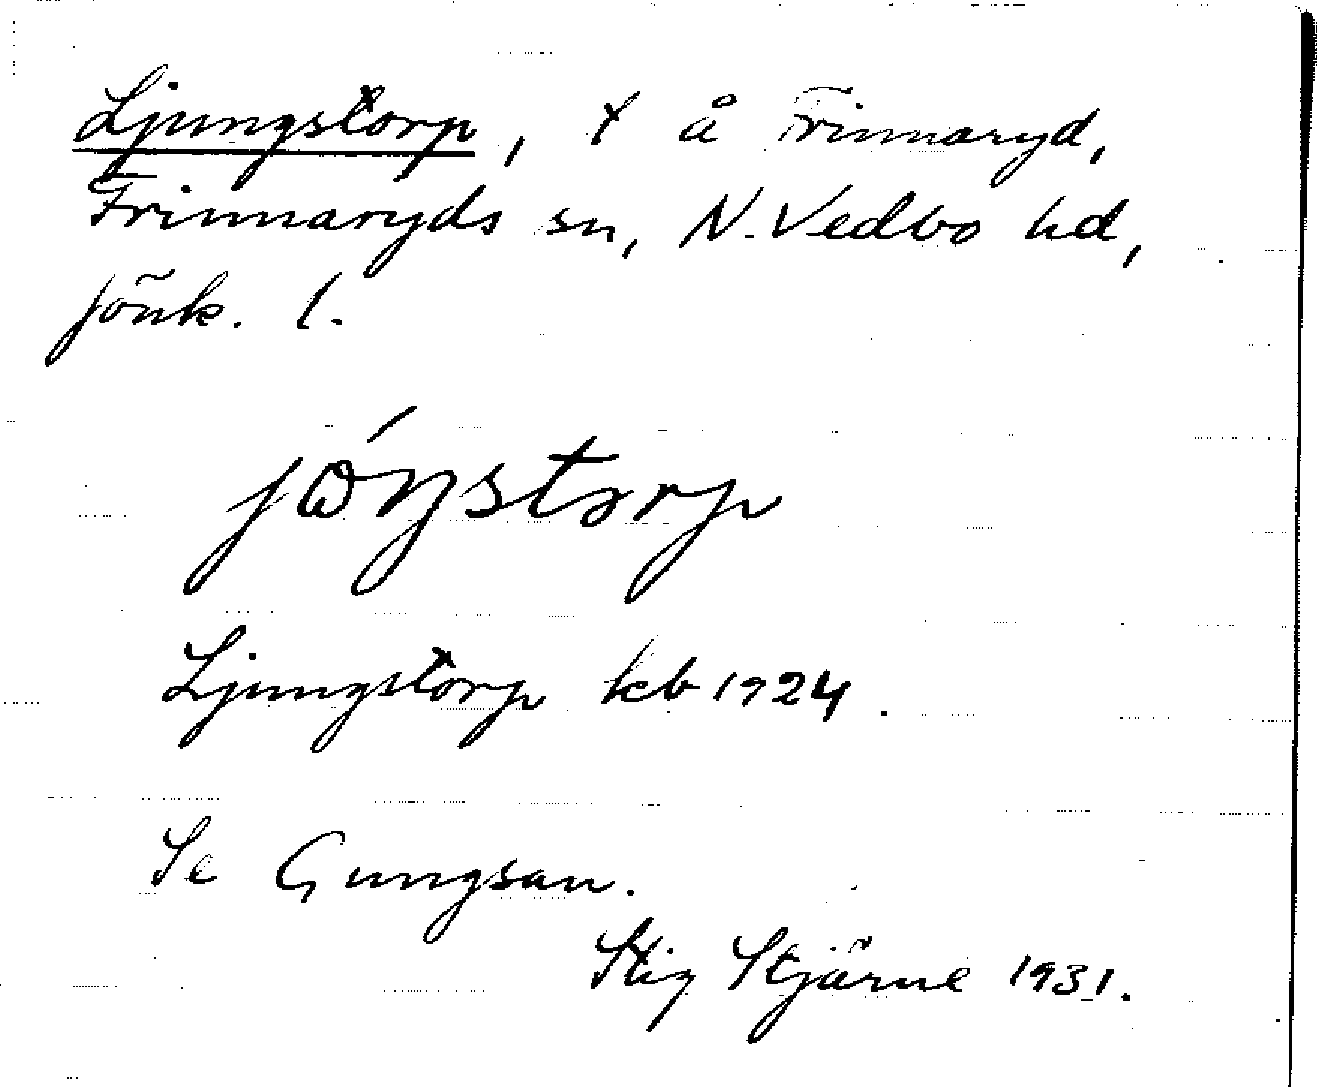 Ljungstorp, t å Frinnaryd,
Frinnaryds sn, N. Vedbo hd,
Jönk. l.
jóŋstorp
Ljungstorp kb 1924.
Se Gungsan.
Stig Stjärne 1931.